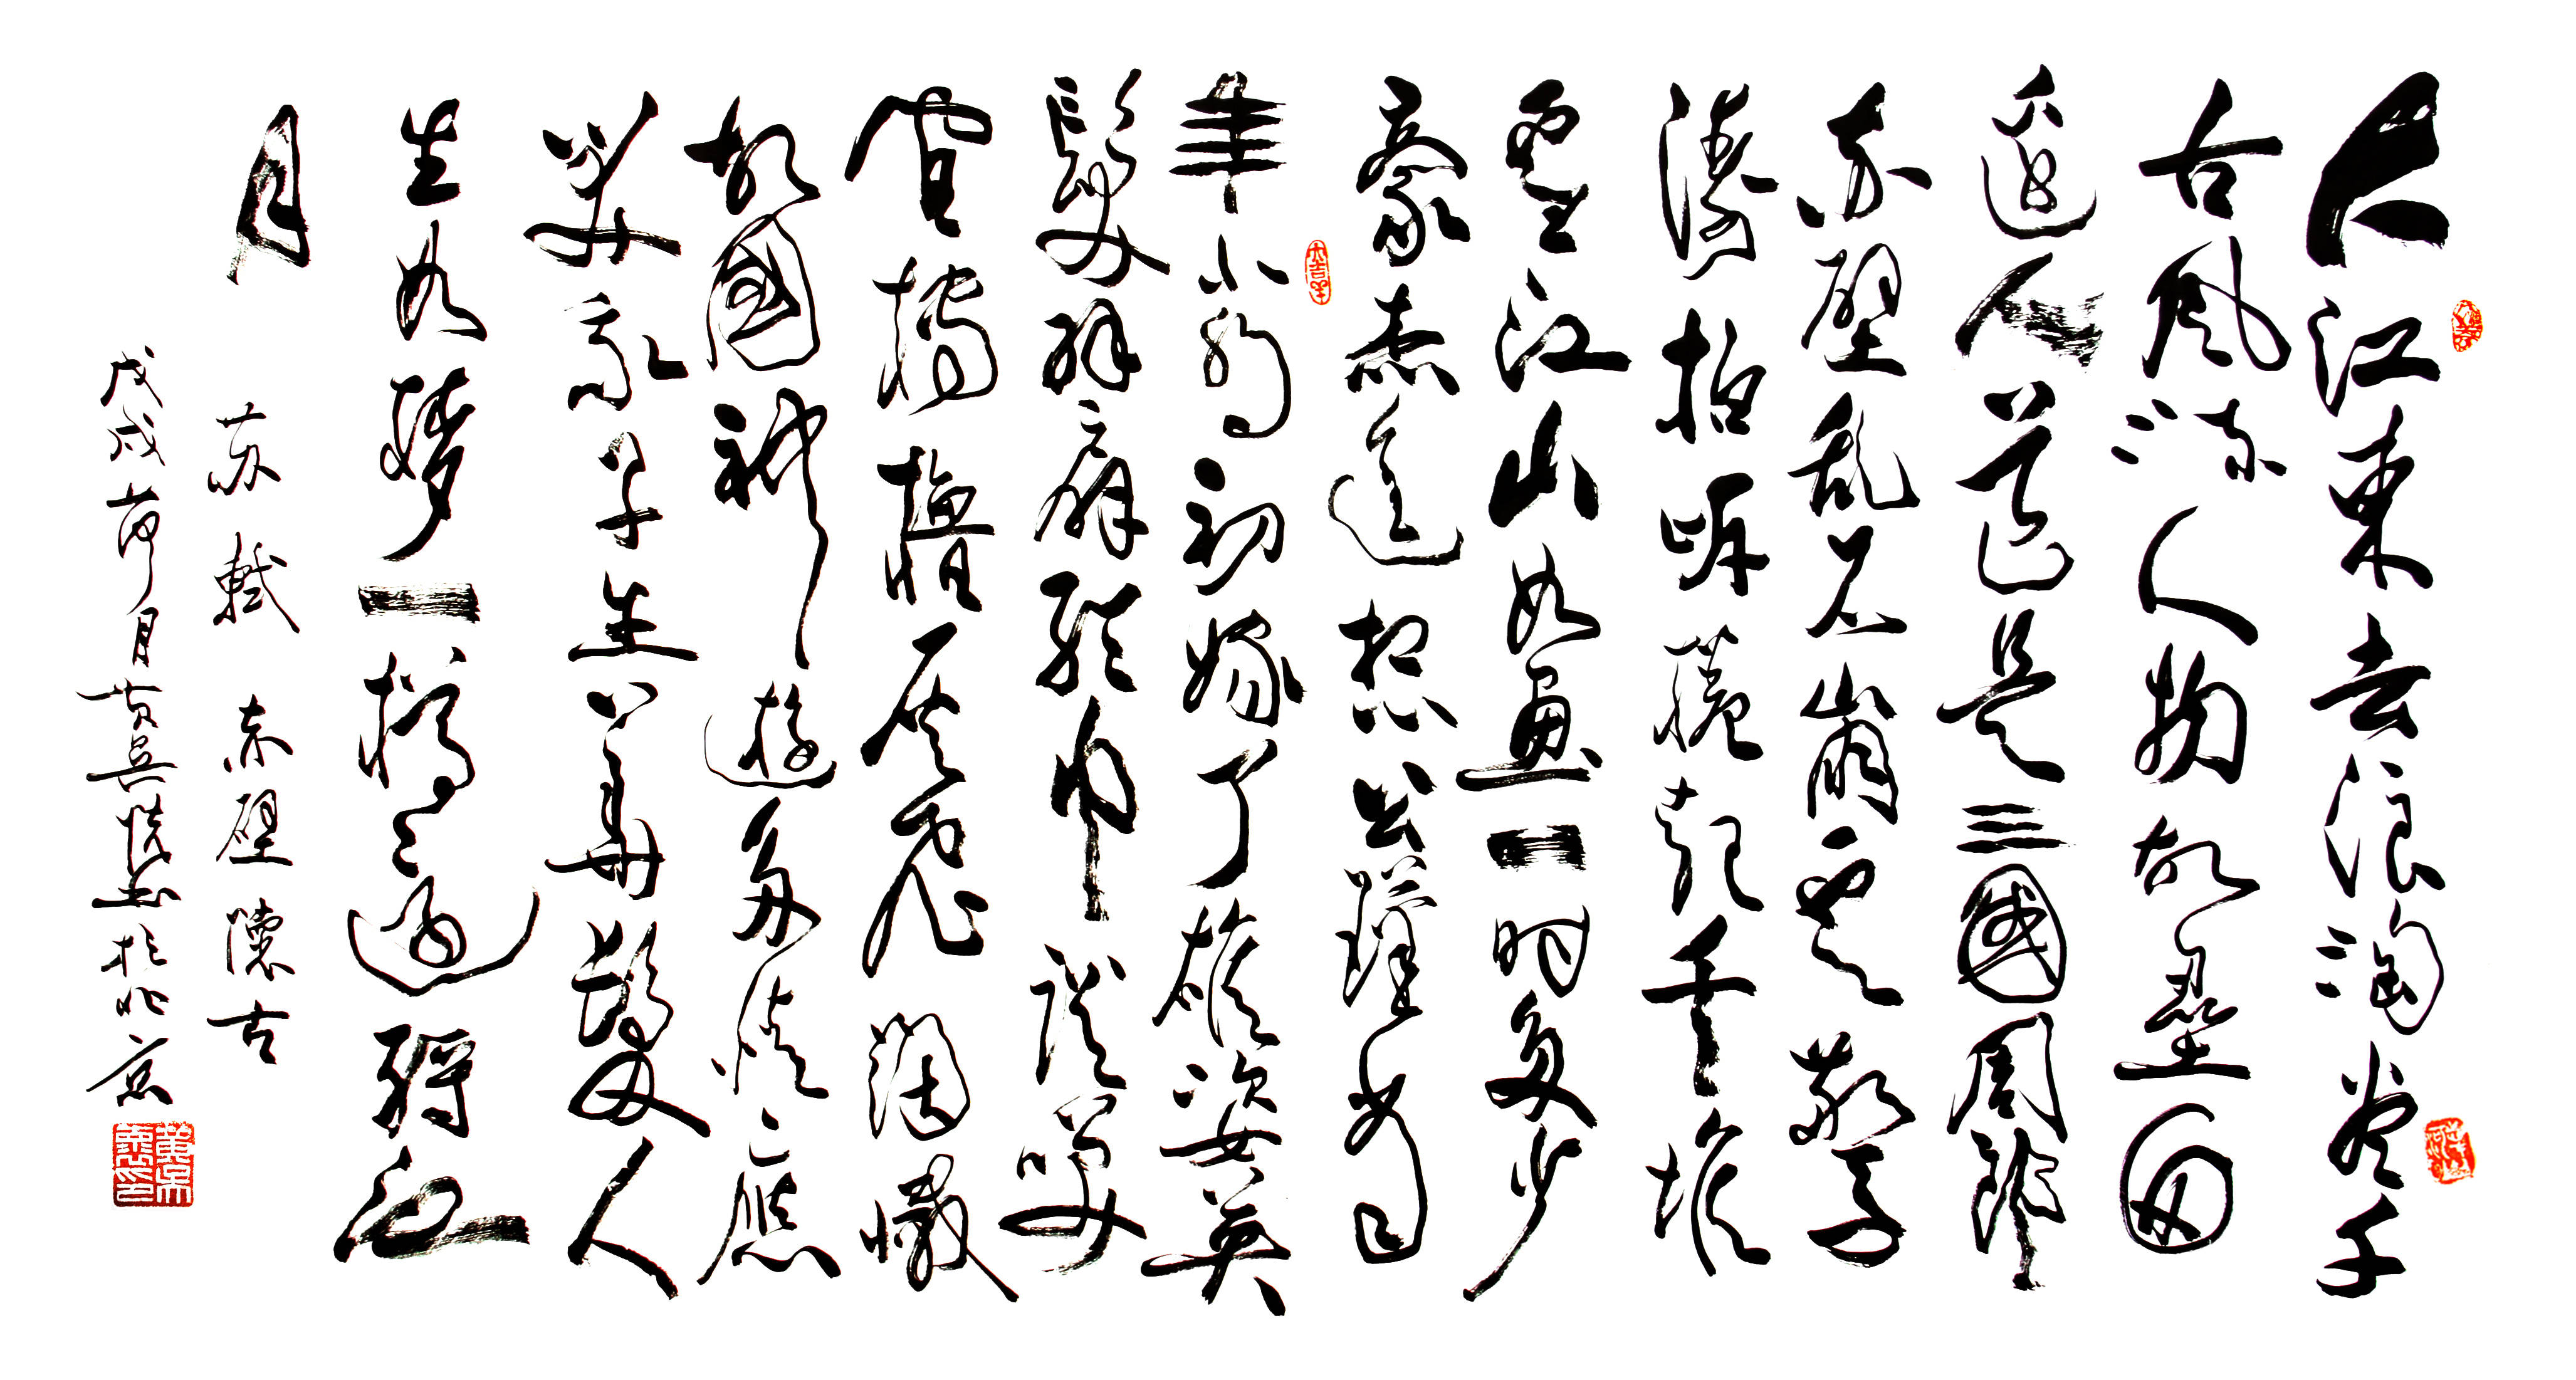 大江東去浪淘尽千
古風流人物故壘西
邊人道是三國周郎
赤壁乱石崩雲驚
濤拍岸捲起千堆
雪江山如畫一时多少
豪杰遥想公瑾当
年小喬初嫁了雄姿英
髮羽扇綸巾談笑
間檣櫓灰飛
故國神遊多情應
笑我早生華髮人
生如夢一樽還酹江
月
苏軾 赤壁懷古
戊戌荷月黄吴怀书於北京
大吉羊